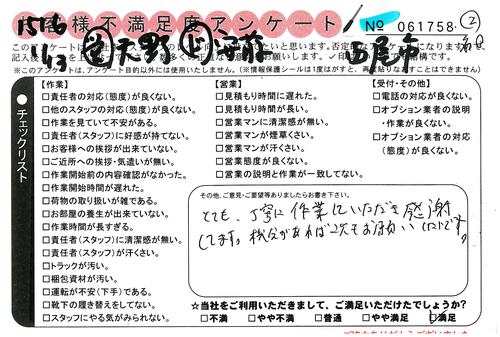 お客様不満足度アンケート
№ 061758
②
1576
11/13
天野
西尾市
チェックリスト
【作業】
□責任者の対応(態度)が良くない。
□他のスタッフの対応(態度)が良くない。
□作業を見ていて不安がある。
□責任者(スタッフ)に好感が持てない。
□お客様への挨拶が出来ていない。
□ご近所への挨拶・気遣いが無い。
□作業開始前の内容確認がなかった。
□作業開始時間が遅れた。
□荷物の取り扱いが雑である。
□お部屋の養生が出来ていない。
□作業時間が長すぎる。
□責任者(スタッフ)に清潔感が無い。
□責任者(スタッフ)が汗くさい。
□トラックが汚い。
□梱包資材が汚い。
□運転が不安(下手)である。
□靴下の履き替えをしてない。
□スタッフにやる気がみられない。
【営業】
□見積もり時間に遅れた。
□見積もり時間が長い。
□営業マンに清潔感が無い。
□営業マンが煙草くさい。
□営業マンが汗くさい。
□営業態度が良くない。
□営業の説明と作業が一致してない。
【受付・その他】
□電話の対応が良くない。
□オプション業者の説明
・作業が良くない。
□オプション業者の対応
(態度)が良くない。
その他、ご意見・ご要望等ありましたらお書き下さい。
とても、丁寧に作業していただき感謝
してます。機会があれば次もお願いしたいです。
☆当社をご利用いただきまして、ご満足いただけたでしょうか?
□不満 □やや不満 □普通 □やや満足 □満足